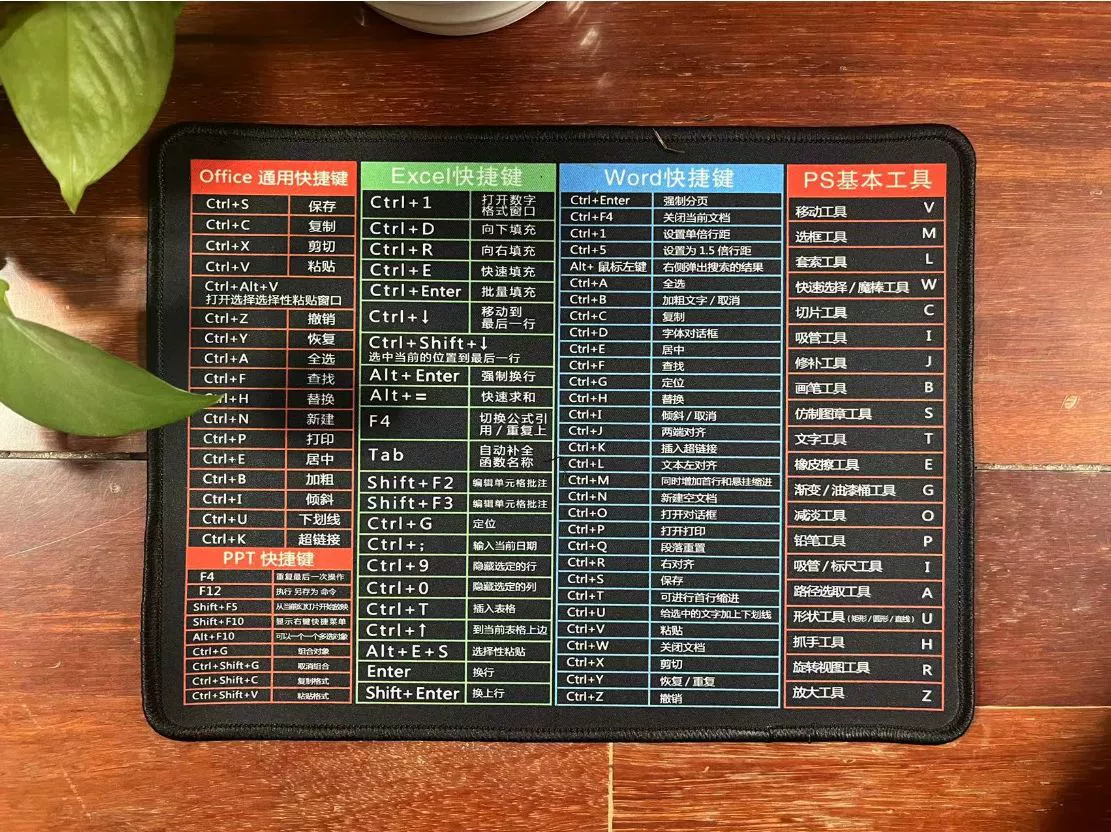 Office 通用快捷键
Ctrl+S 保存
Ctrl+C 复制
Ctrl+X 剪切
Ctrl+V 粘贴
Ctrl+Alt+V
打开选择选择性粘贴窗口
Ctrl+Z 撤销
Ctrl+Y 恢复
Ctrl+A 全选
Ctrl+F 查找
Ctrl+H 替换
Ctrl+N 新建
Ctrl+P 打印
Ctrl+E 居中
Ctrl+B 加粗
Ctrl+I 倾斜
Ctrl+U 下划线
Ctrl+K 超链接
PPT 快捷键
F4 重复最后一次操作
F12 执行 另存为 命令
Shift+F5 从当前幻灯片开始放映
Shift+F10 显示右键快捷菜单
Alt+F10 可以一个一个多选对象
Ctrl+G 组合对象
Ctrl+Shift+G 取消组合
Ctrl+Shift+C 复制格式
Ctrl+Shift+V 粘贴格式
Excel快捷键
Ctrl+1 打开数字
格式窗口
Ctrl+D 向下填充
Ctrl+R 向右填充
Ctrl+E 快速填充
Ctrl+Enter 批量填充
Ctrl+↓ 移动到
最后一行
Ctrl+Shift+↓
选中当前的位置到最后一行
Alt+Enter 强制换行
Alt+= 快速求和
F4 切换公式引
用/重复上
Tab 自动补全
函数名称
Shift+F2 编辑单元格批注
Shift+F3 编辑单元格批注
Ctrl+G 定位
Ctrl+; 输入当前日期
Ctrl+9 隐藏选定的行
Ctrl+0 隐藏选定的列
Ctrl+T 插入表格
Ctrl+↑ 到当前表格上边
Alt+E+S 选择性粘贴
Enter 换行
Shift+Enter 换上行
Word快捷键
Ctrl+Enter 强制分页
Ctrl+F4 关闭当前文档
Ctrl+1 设置单倍行距
Ctrl+5 设置为 1.5 倍行距
Alt+ 鼠标左键 右侧弹出搜索的结果
Ctrl+A 全选
Ctrl+B 加粗文字/取消
Ctrl+C 复制
Ctrl+D 字体对话框
Ctrl+E 居中
Ctrl+F 查找
Ctrl+G 定位
Ctrl+H 替换
Ctrl+I 倾斜/取消
Ctrl+J 两端对齐
Ctrl+K 插入超链接
Ctrl+L 文本左对齐
Ctrl+M 同时增加首行和悬挂缩进
Ctrl+N 新建空文档
Ctrl+O 打开对话框
Ctrl+P 打开打印
Ctrl+Q 段落重置
Ctrl+R 右对齐
Ctrl+S 保存
Ctrl+T 可进行首行缩进
Ctrl+U 给选中的文字加上下划线
Ctrl+V 粘贴
Ctrl+W 关闭文档
Ctrl+X 剪切
Ctrl+Y 恢复/重复
Ctrl+Z 撤销
PS基本工具
移动工具 V
选框工具 M
套索工具 L
快速选择/魔棒工具 W
切片工具 C
吸管工具 I
修补工具 J
画笔工具 B
仿制图章工具 S
文字工具 T
橡皮擦工具 E
渐变/油漆桶工具 G
减淡工具 O
铅笔工具 P
吸管/标尺工具 I
路径选取工具 A
形状工具(矩形/圆形/直线) U
抓手工具 H
旋转视图工具 R
放大工具 Z